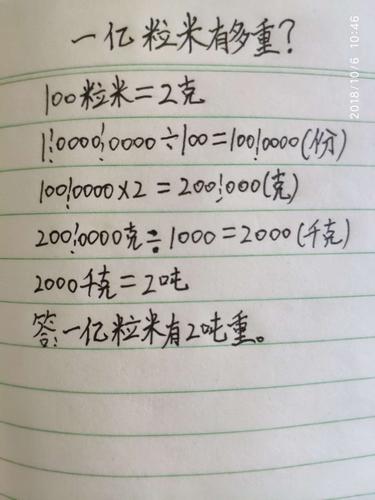 一亿粒米有多重?
2018/10/6 10:46
100粒米=2克
1¦0000¦0000÷100=100¦0000(份)
100¦0000×2=200¦000(克)
200¦0000克÷1000=2000(千克)
2000千克=2吨
答:一亿粒米有2吨重。